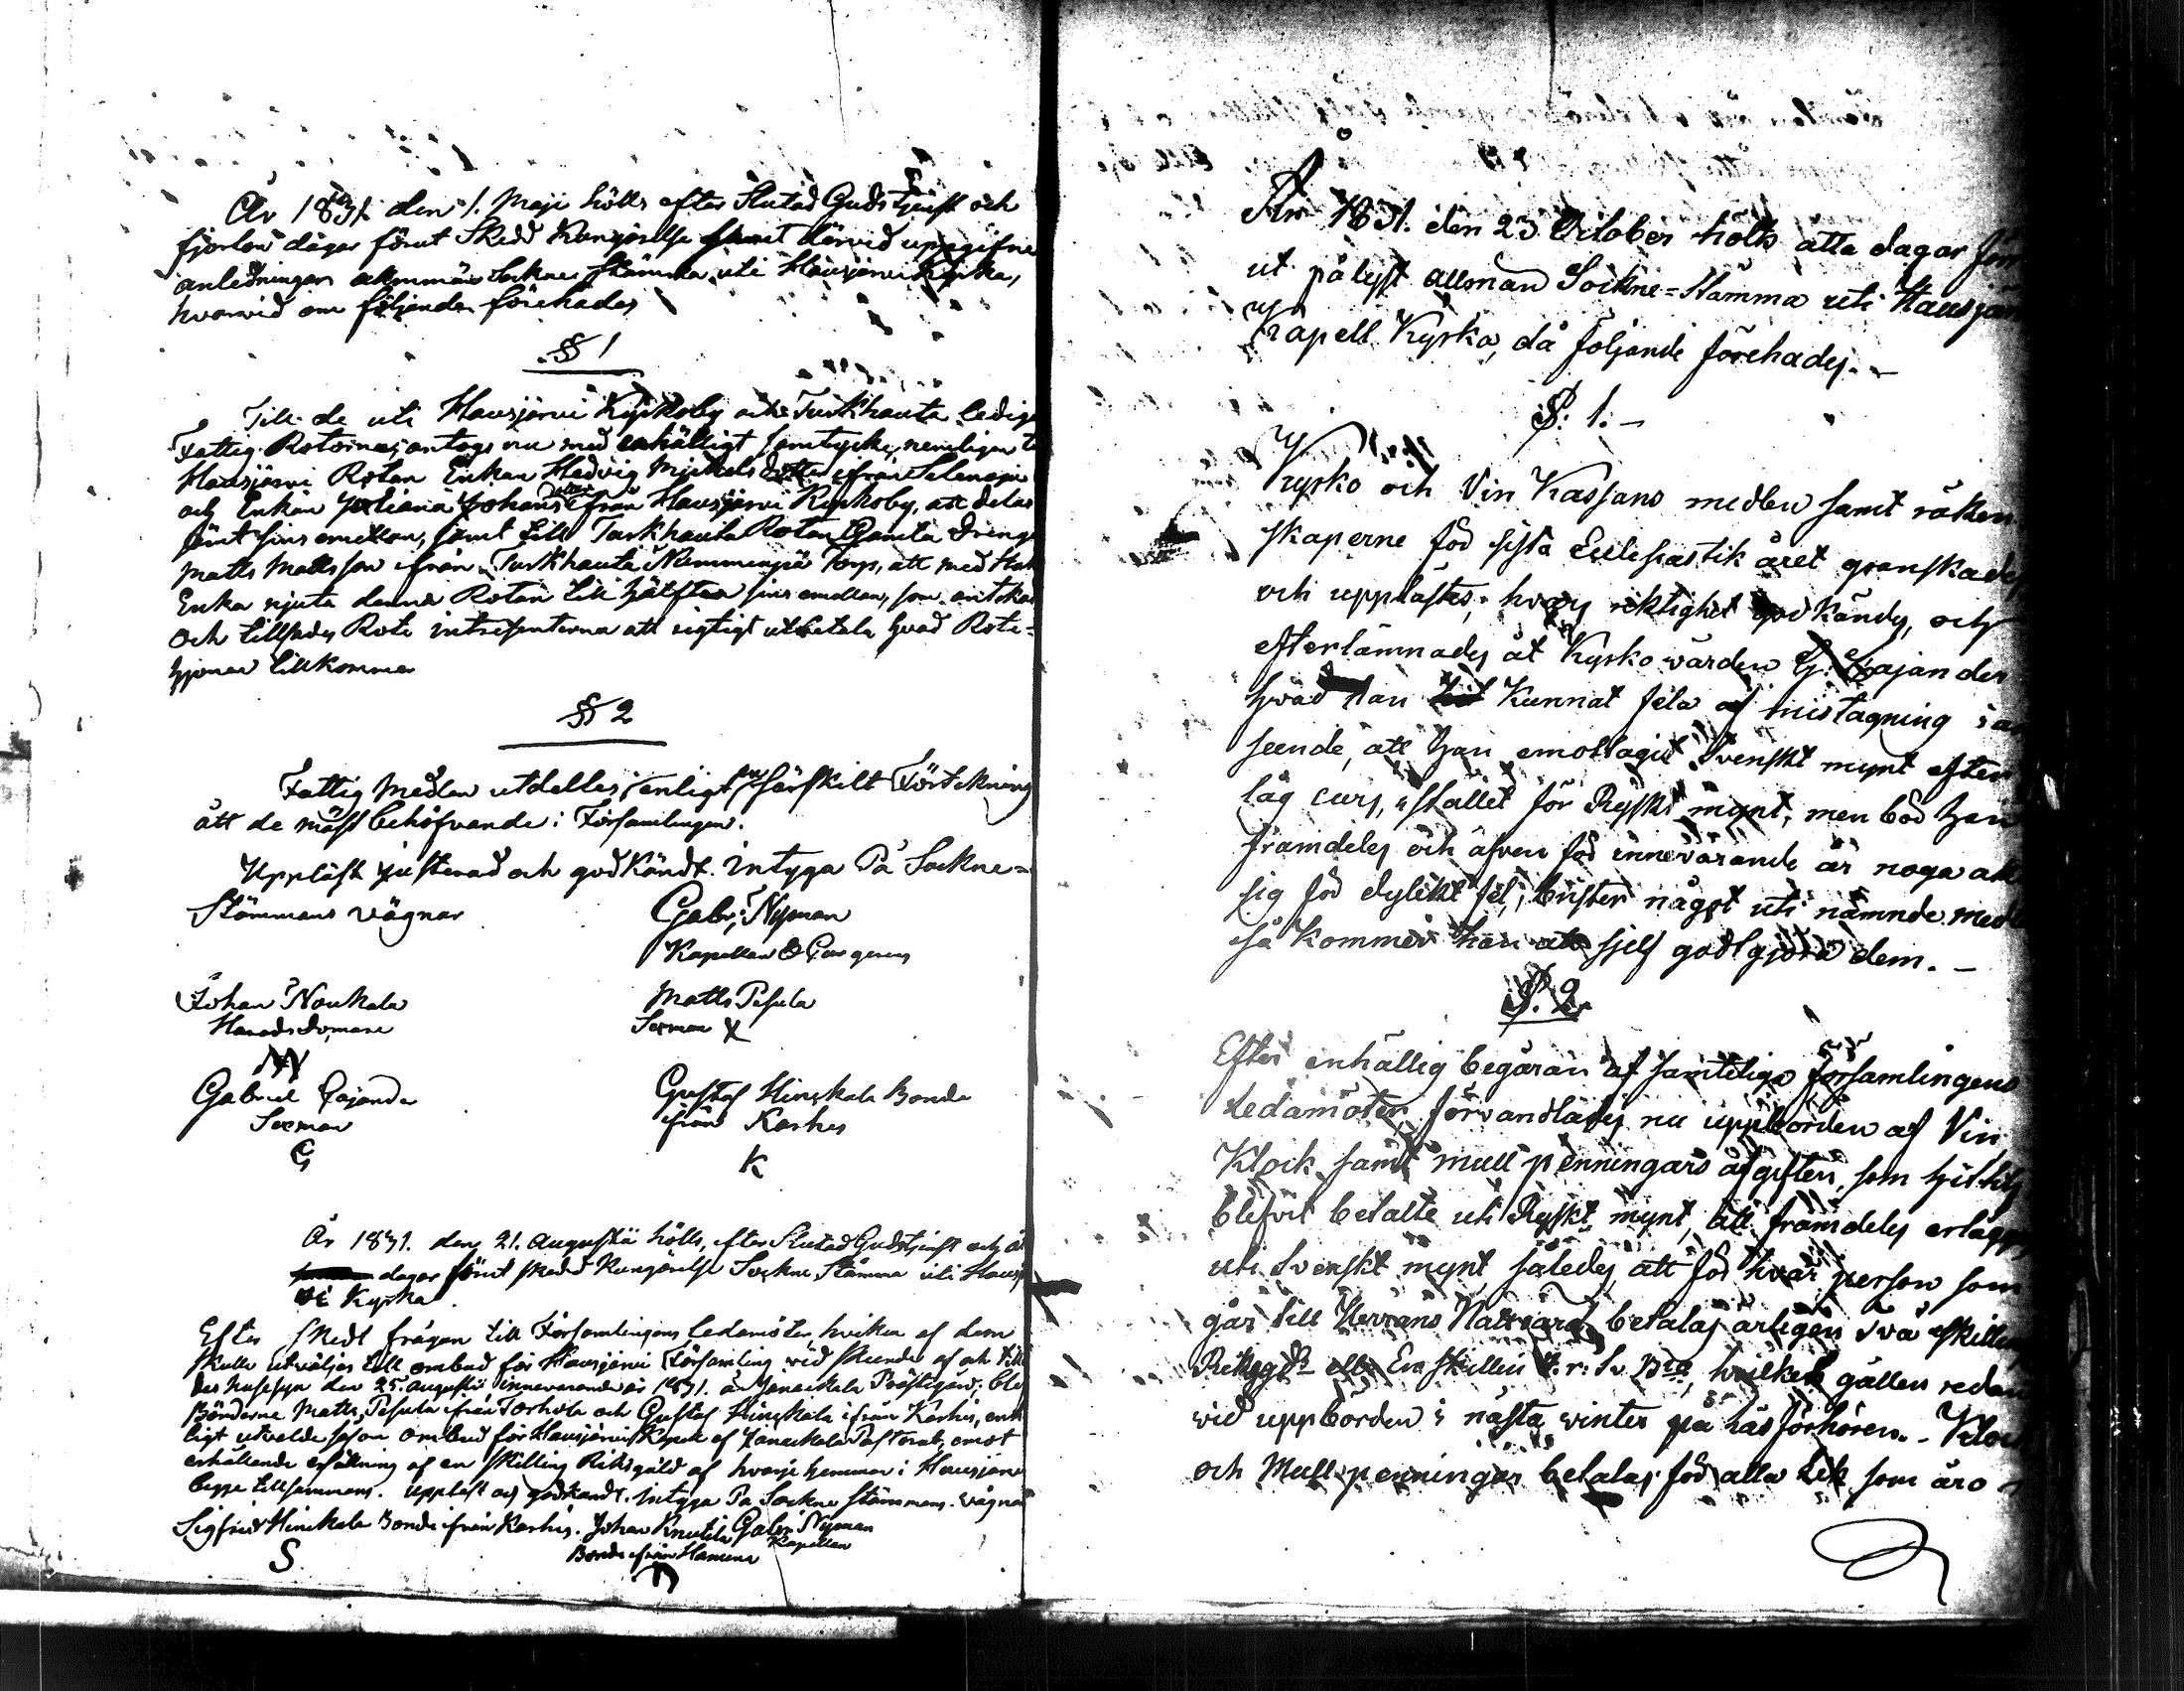 År 1831 den 1. Maji hölls efter Slutad Gudstjenst och
fjorton dagar förut Skedd Kungörelse samt dervid uppgifne
anledningar allmän Sockne Stämma uti Hausjärvi Kyrka,
hvarvid om följande förehades
§ 1
Till de uti Hausjärvi Kyrkoby och Turkhauta ledige
Fattig Rotorna, antogs nu med enhälligt samtycke, nemligen t
Hausjärvi Rotan Enkan Hedvig Michelsdotter ifrån Selenoja
och Enkan Juliana Johansdotter från Hausjärvi Kyrkoby, att delas
jämt sins emellan, samt till Turkhauta Rotan Gamla Dreng
Matts Mattsson ifrån Turkhauta Nummenpää Torp, att med
Enka njuta denna Rotan till hälften sins emellan, som antoks
och tillsades Rote intressenterna att rigtigt utbetala hvad Rote-
hjonen tillkomma
§ 2
Fattig Medlen utdeltes enligt särskilt Förtekning
åt de mäst behöfvande i Församlingen.
Uppläst justerad och godkändt. intyga På Sockne-
Stämmans vägnar Gabr: Nyman
Kapellan
Johan Naukala Matts Pesula
Häradsdomare Sexman X
Gabriel Cajander Gustaf Hinskala Bonde
Sexman ifrån Karhis
G K
År 1831. den 21. Augusti hölls, efter Slutad Gudstjenst och
dagar förut skedd Kungörelse Sockne Stämma uti Hausj
vi Kyrka.
Efter skedt frågan till Församlingens ledamöter, hvilka af dem
skulle utväljas till ombud för Hausjärvi Församling vid skeende af och till
des husesyn den 25. Augusti innevarande år 1831. å Janackala Prästgård; blef
Bönderne Matts Pesula ifrån Torhola och Gustaf Hinskala ifrån Karhis, enh
ligt utvalde såsom Ombud för Hausjärvi af Janackala Pastorat, emot
erhållande ersättning af en Skilling Riksgäld af hvarje hemman i Hausjärvi
begge tillsammans. Uppläst och godkändt. intyga På Sockne Stämmans vägnar
Sigfrid Hinskala Bonde ifrån Karhis. Johan Knuutila Gabr: Nyman
Bonde ifrån Hamina Kapellan
S
År 1831. den 23 October hölts åtta dagar för
ut pålyst allmän Sockne-Stämma uti Hausjär
Kapell Kyrka, då följande förehades. -
§. 1. -
Kyrko och Vin Kassans medlen samt räken
skaperne för sista Ecclesiastik året granskades
och upplästes, hvars riktighet godkändes, och
efterlämnades åt Kyrko värden G: Cajander
hvad han Kunnat fela af misstagning i an
seende, att han emottagit Svenskt mynt efter
låg curs, istället för Ryskt mynt, men bör han
framdeles och äfven för innevarande år noga akt
sig för dylikt fel; brister något uti nämnde medl
så kommer han att sjelf godtgjöra dem. -
§. 2.
Efter enhällig begäran af samtelige församlingens
Ledamöter, förvandlades nu uppbörden af Vin
Klock samt mull penningars afgiften, som hit tils
blefvit betalte uti Ryskt mynt, att framdeles erläggas
uti Svenskt mynt, således, att för hvar person som
går till Herrans Nattvard, betalas årligen två skilling
Riksgds eller En skillin Sv. Bco, hvilket gäller redan
vid uppbörden i nästa vinter på läsförhören. - Klock
och Mull penningar betalas för alla Lik som äro